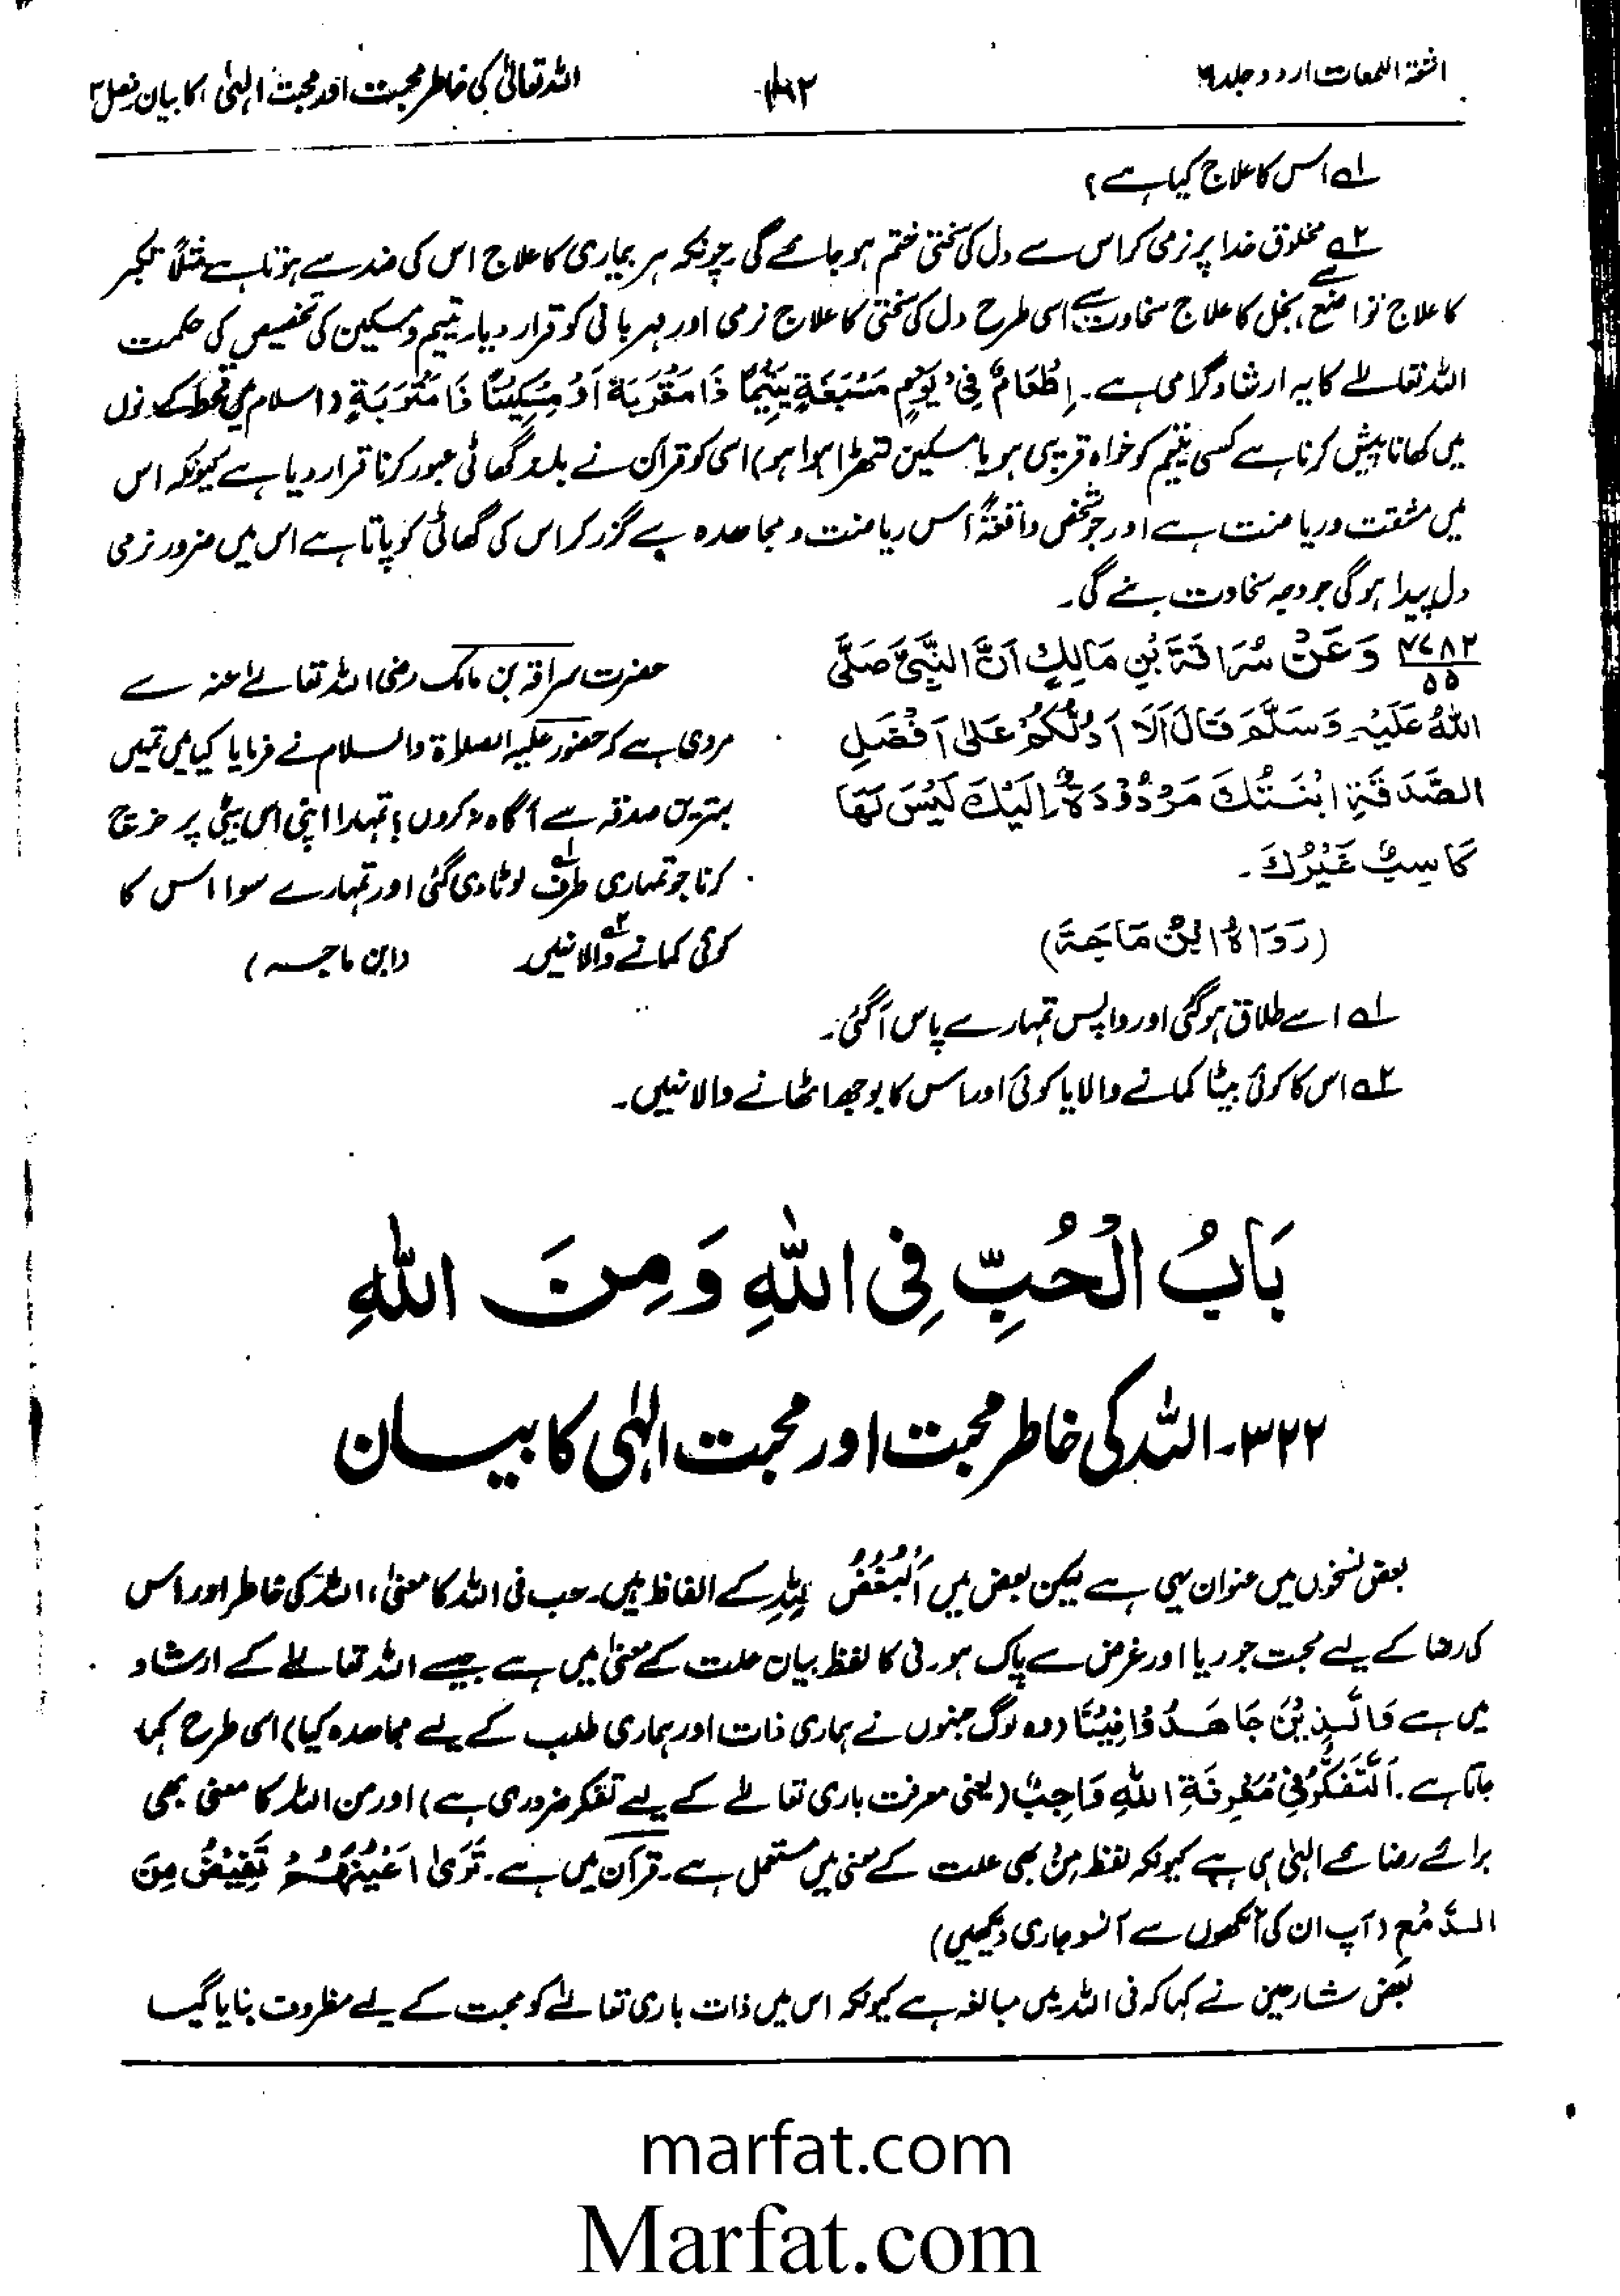 اشعۃ اللمعات اردو جلد ۶
اللہ تعالیٰ کی خاطر محبت اور محبت الٰہی کا بیان فصل ۳
لے اس کا علاج کیا ہے؟
۲ے مخلوق خدا پر نرمی کر اس سے دل کی سختی ختم ہو جائے گی۔ چونکہ ہر بیماری کا علاج اس کی ضد سے ہوتا ہے مثلاً تکبر
کا علاج تواضع، بخل کا علاج سخاوت ہے اسی طرح دل کی سختی کا علاج نرمی اور مہربانی کو قرار دیا۔ یتیم و مسکین کی تخصیص کی حکمت
اللہ تعالےٰ کا یہ ارشاد گرامی ہے۔ اِطْعَامٌ فِیْ یَوْمٍ مَسْبَغَۃٍ یَتِیْمًا ذَا مَقْرَبَۃٍ اَوْ مِسْکِیْنًا ذَا مَتْرَبَۃٍ (اسلام میں قحط کے دنوں
میں کھانا پیش کرنا ہے کسی یتیم کو خواہ قریبی ہو یا مسکین لتھڑا ہوا ہو) اسی کو قرآن نے بلند گھاٹی عبور کرنا قرار دیا ہے کیونکہ اس
میں مشقت وریاضت ہے اور جو شخص واقعۃً اس ریاضت و مجاہدہ سے گزر کر اس کی گھاٹی کو پاتا ہے اس میں ضرور نرمی
دل پیدا ہوگی جو وجہ سخاوت بنے گی۔
۴۷۸۲
۵۵
وَعَنْ سُرَاقَۃَ بْنِ مَالِکٍ اَنَّ النَّبِیَّ صَلَّی
اللہُ عَلَیْہِ وَسَلَّمَ قَالَ اَلَا اَدُلُّکُمْ عَلیٰ اَفْضَلِ
الصَّدَقَۃِ ابْنَتُکَ مَرْدُوْدَۃٌ اِلَیْکَ لَیْسَ لَھَا
کَاسِبٌ غَیْرُکَ۔
(رَوَاہُ ابْنُ مَاجَۃَ)
حضرت سراقہ بن مالک رضی اللہ تعالےٰ عنہ سے
مروی ہے کہ حضور علیہ الصلاۃ والسلام نے فرمایا کیا میں تمہیں
بہترین صدقہ سے آگاہ نہ کروں؟ تمہارا اپنی اس بیٹی پر خرچ
کرنا جو تمہاری طرف لے لوٹا دی گئی اور تمہارے سوا اس کا
کوئی کمانے والا نہیں ۲ے (ابن ماجہ)
لے اسے طلاق ہو گئی اور واپس تمہارے پاس آ گئی۔
۲ے اس کا کوئی بیٹا کمانے والا یا کوئی اور اس کا بوجھ اٹھانے والا نہیں۔
بَابُ الْحُبِّ فِی اللہِ وَمِنَ اللہِ
۳۲۲۔ اللہ کی خاطر محبت اور محبت الٰہی کا بیان
بعض نسخوں میں عنوان یہی ہے لیکن بعض میں اَلْبُغْضُ لِلّٰہِ کے الفاظ ہیں۔ حب فی اللہ کا معنیٰ، اللہ کی خاطر اور اس
کی رضا کے لیے محبت جو ریا اور غرض سے پاک ہو۔ فی کا لفظ بیان علت کے معنیٰ میں ہے جیسے اللہ تعالےٰ کے ارشاد
میں ہے وَالَّذِیْنَ جَاھَدُوْا فِیْنَا (وہ لوگ جنہوں نے ہماری ذات اور ہماری طلب کے لیے مجاہدہ کیا) اسی طرح کہا
جاتا ہے۔ اَلتَّفَکُّرُ فِیْ مَعْرِفَۃِ اللہِ وَاجِبٌ (یعنی معرفت باری تعالےٰ کے لیے تفکر ضروری ہے) اور من اللہ کا معنی بھی
برائے رضائے الٰہی ہی ہے کیونکہ لفظ مِنْ بھی علت کے معنی میں مستعمل ہے۔ قرآن میں ہے۔ تَرٰی اَعْیُنَھُمْ تَفِیْضُ مِنَ
الدَّمْعِ (آپ ان کی آنکھوں سے آنسو جاری دیکھیں)
بعض شارحین نے کہا کہ فی اللہ میں مبالغہ ہے کیونکہ اس میں ذات باری تعالےٰ کو محبت کے لیے مظروف بنایا گیا
marfat.com
Marfat.com